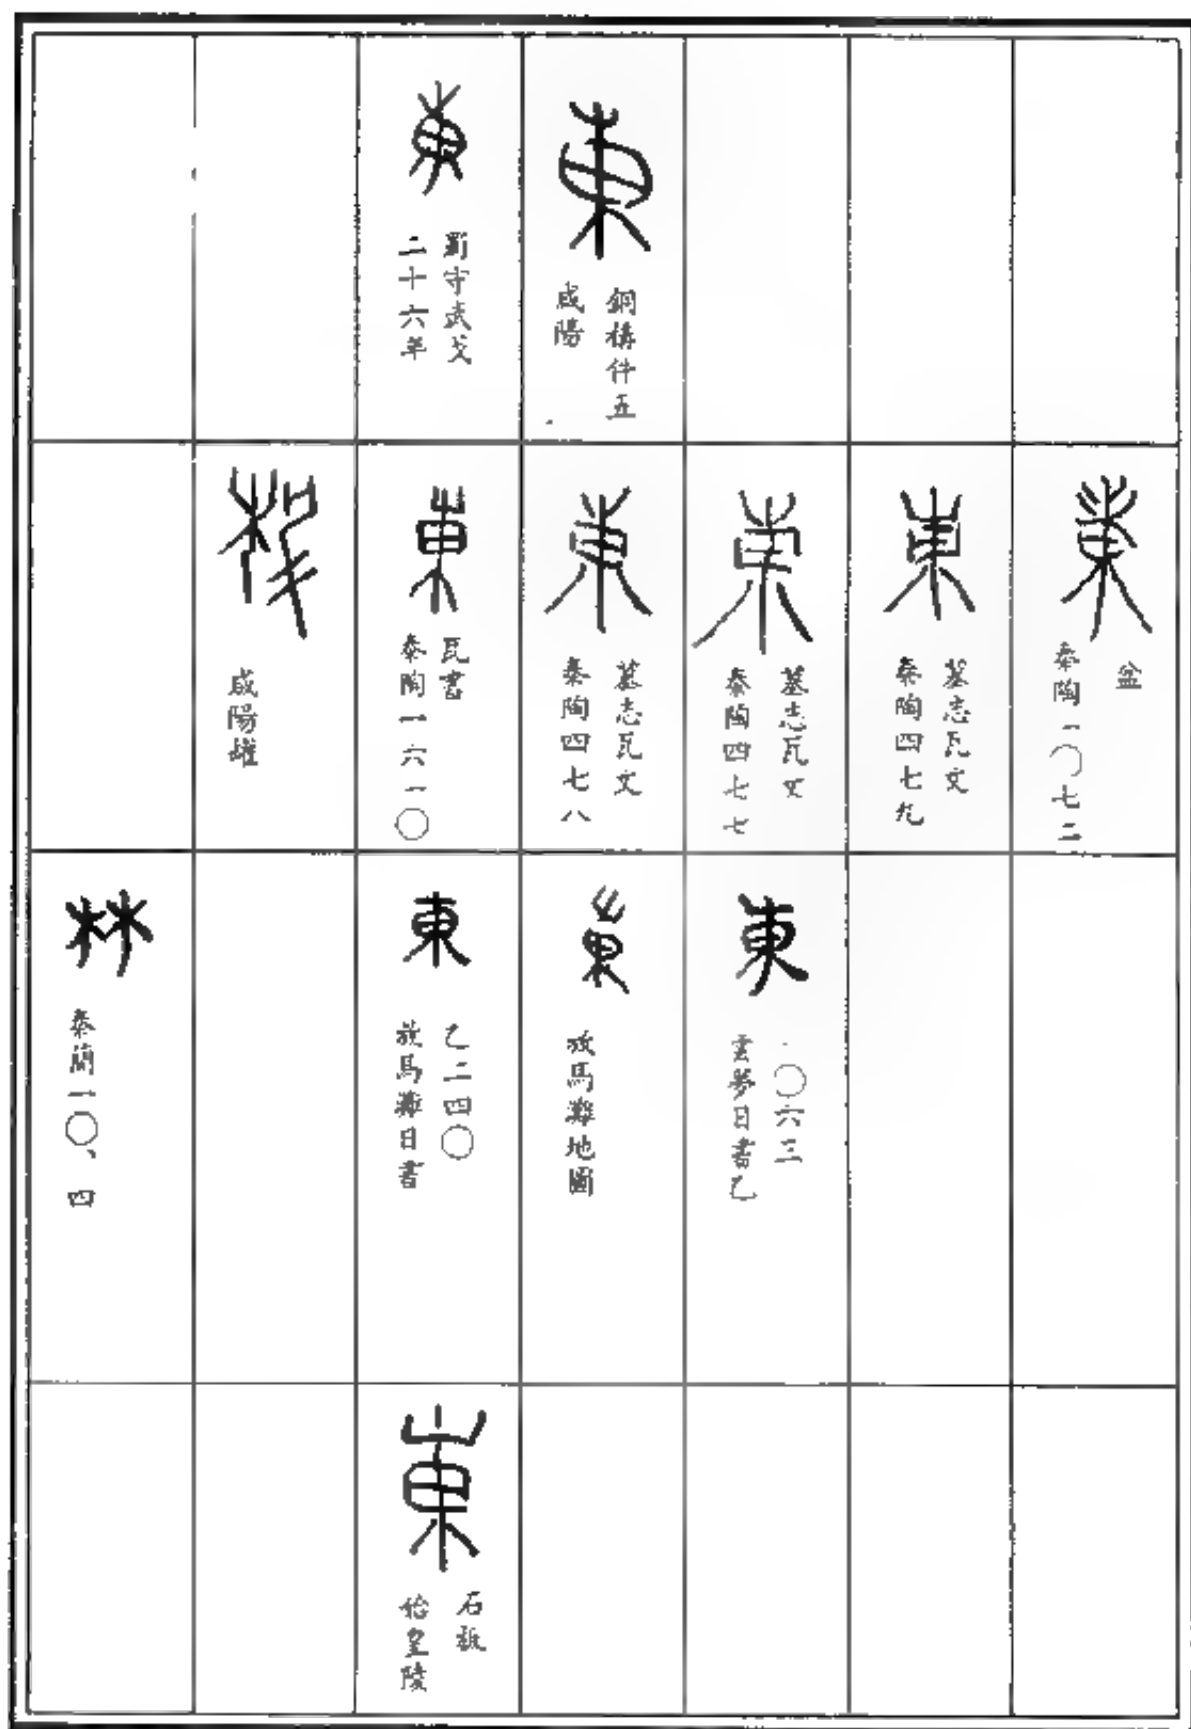 東
銅構件五
咸陽
東
蜀守武戈
二十六年
東
盆
秦陶一〇七二
東
墓志瓦文
秦陶四七九
東
墓志瓦文
秦陶四七七
東
墓志瓦文
秦陶四七八
東
瓦書
秦陶一六一〇
咸陽罐
東
一〇六三
雲夢日書乙
東
放馬灘地圖
東
乙二四〇
放馬灘日書
林
秦簡一〇、四
東
石板
始皇陵